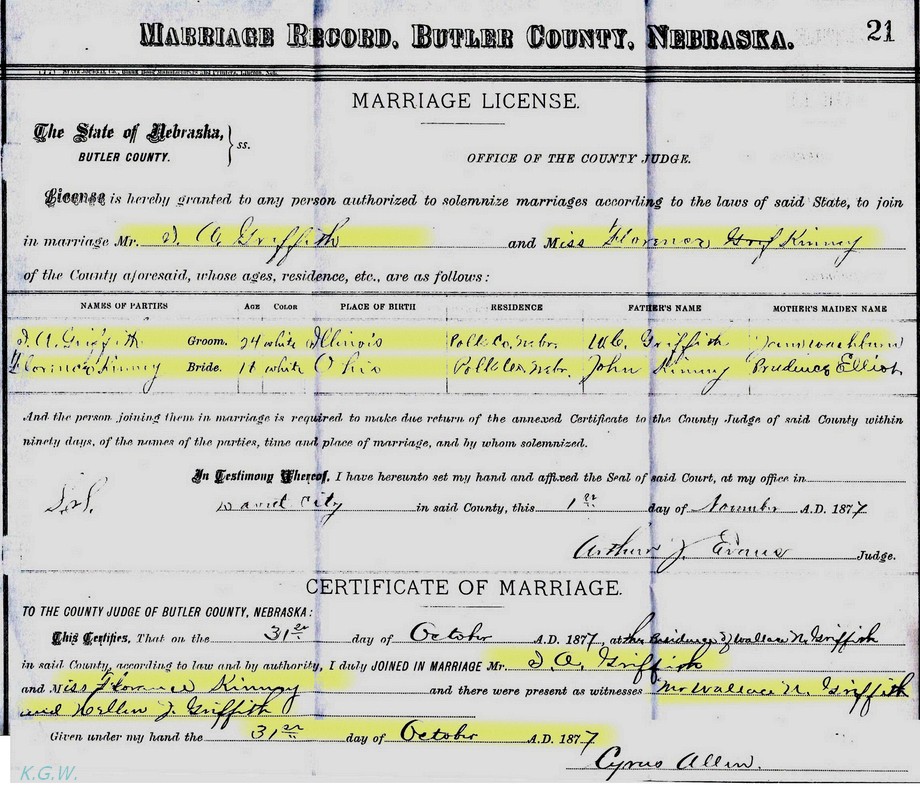 MARRIAGE RECORD, BUTLER COUNTY, NEBRASKA. 21
MARRIAGE LICENSE.
The State of Nebraska, } ss.
BUTLER COUNTY.
OFFICE OF THE COUNTY JUDGE.
License is hereby granted to any person authorized to solemnize marriages according to the laws of said State, to join
in marriage Mr. Griffith and Miss Florence Kinney
of the County aforesaid, whose ages, residence, etc., are as follows:
NAMES OF PARTIES AGE COLOR PLACE OF BIRTH RESIDENCE FATHER'S NAME MOTHER'S MAIDEN NAME
Griffith Groom. 24 white Illinois Polk Co. Nebr. Griffith Washburn
Florence Kinney Bride. white Ohio Polk Co. Nebr. John Kinney Prudence Elliot
And the person joining them in marriage is required to make due return of the annexed Certificate to the County Judge of said County within
ninety days, of the names of the parties, time and place of marriage, and by whom solemnized.
In Testimony Whereof, I have hereunto set my hand and affixed the Seal of said Court, at my office in
David City in said County, this 1st day of November A.D. 1877
Arthur J Evans Judge.
CERTIFICATE OF MARRIAGE.
TO THE COUNTY JUDGE OF BUTLER COUNTY, NEBRASKA:
This Certifies, That on the 31st day of October A.D. 1877, at the Residence of Wallace N. Griffith
in said County, according to law and by authority, I duly JOINED IN MARRIAGE Mr. Griffith
and Miss Florence Kinney and there were present as witnesses Mr Wallace N. Griffith
and Hellen J. Griffith
Given under my hand the 31st day of October A.D. 1877
Cyrus Allen.
K.G.W.